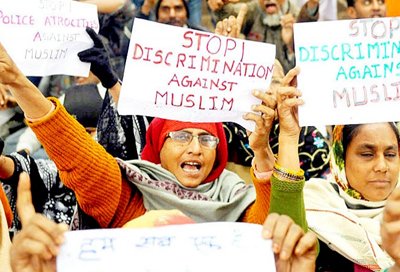 POLICE ATROCITIES
AGAINST
MUSLIM
STOP!
DISCRIMINATION
AGAINST
MUSLIM
STOP!
DISCRIMIN
AGAINS
MUSLI
हम सब एक है